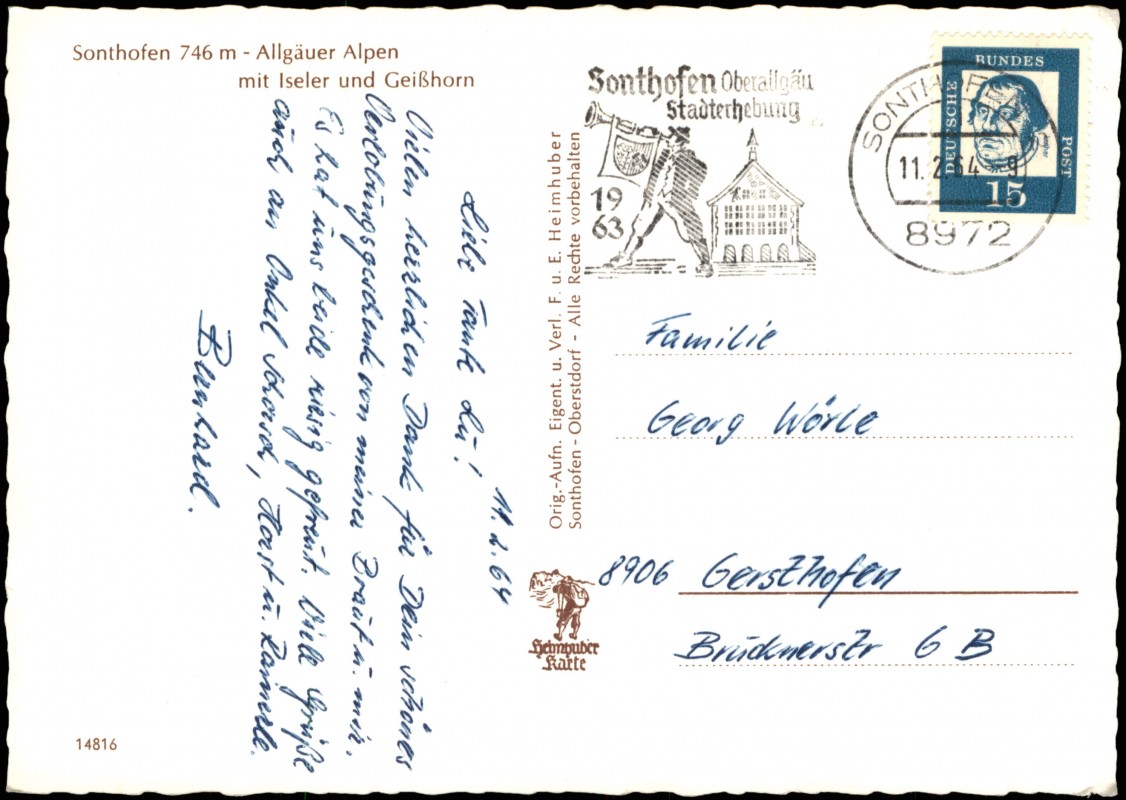 Sonthofen 746 m - Allgäuer Alpen
mit Iseler und Geißhorn
11.2.64
Liebe Tante Lu!
Vielen herzlichen Dank für Dein schönes
Verlobungsgeschenk von meiner Braut u. mir.
Es hat uns beide riesig gefreut. Viele Grüße
auch an Onkel Schorsch, Horst u.
Bernhard.
14816
Orig.-Aufn. Eigent. u. Verl. F. u. E. Heimhuber
Sonthofen - Oberstdorf - Alle Rechte vorbehalten
Heimhuber
Karte
Sonthofen Oberallgäu
Stadterhebung
19
63
SONTHOFEN
11.2.64-9
8972
DEUTSCHE
BUNDES
POST
15
Familie
Georg Wörle
8906 Gersthofen
Brucknerstr 6 B